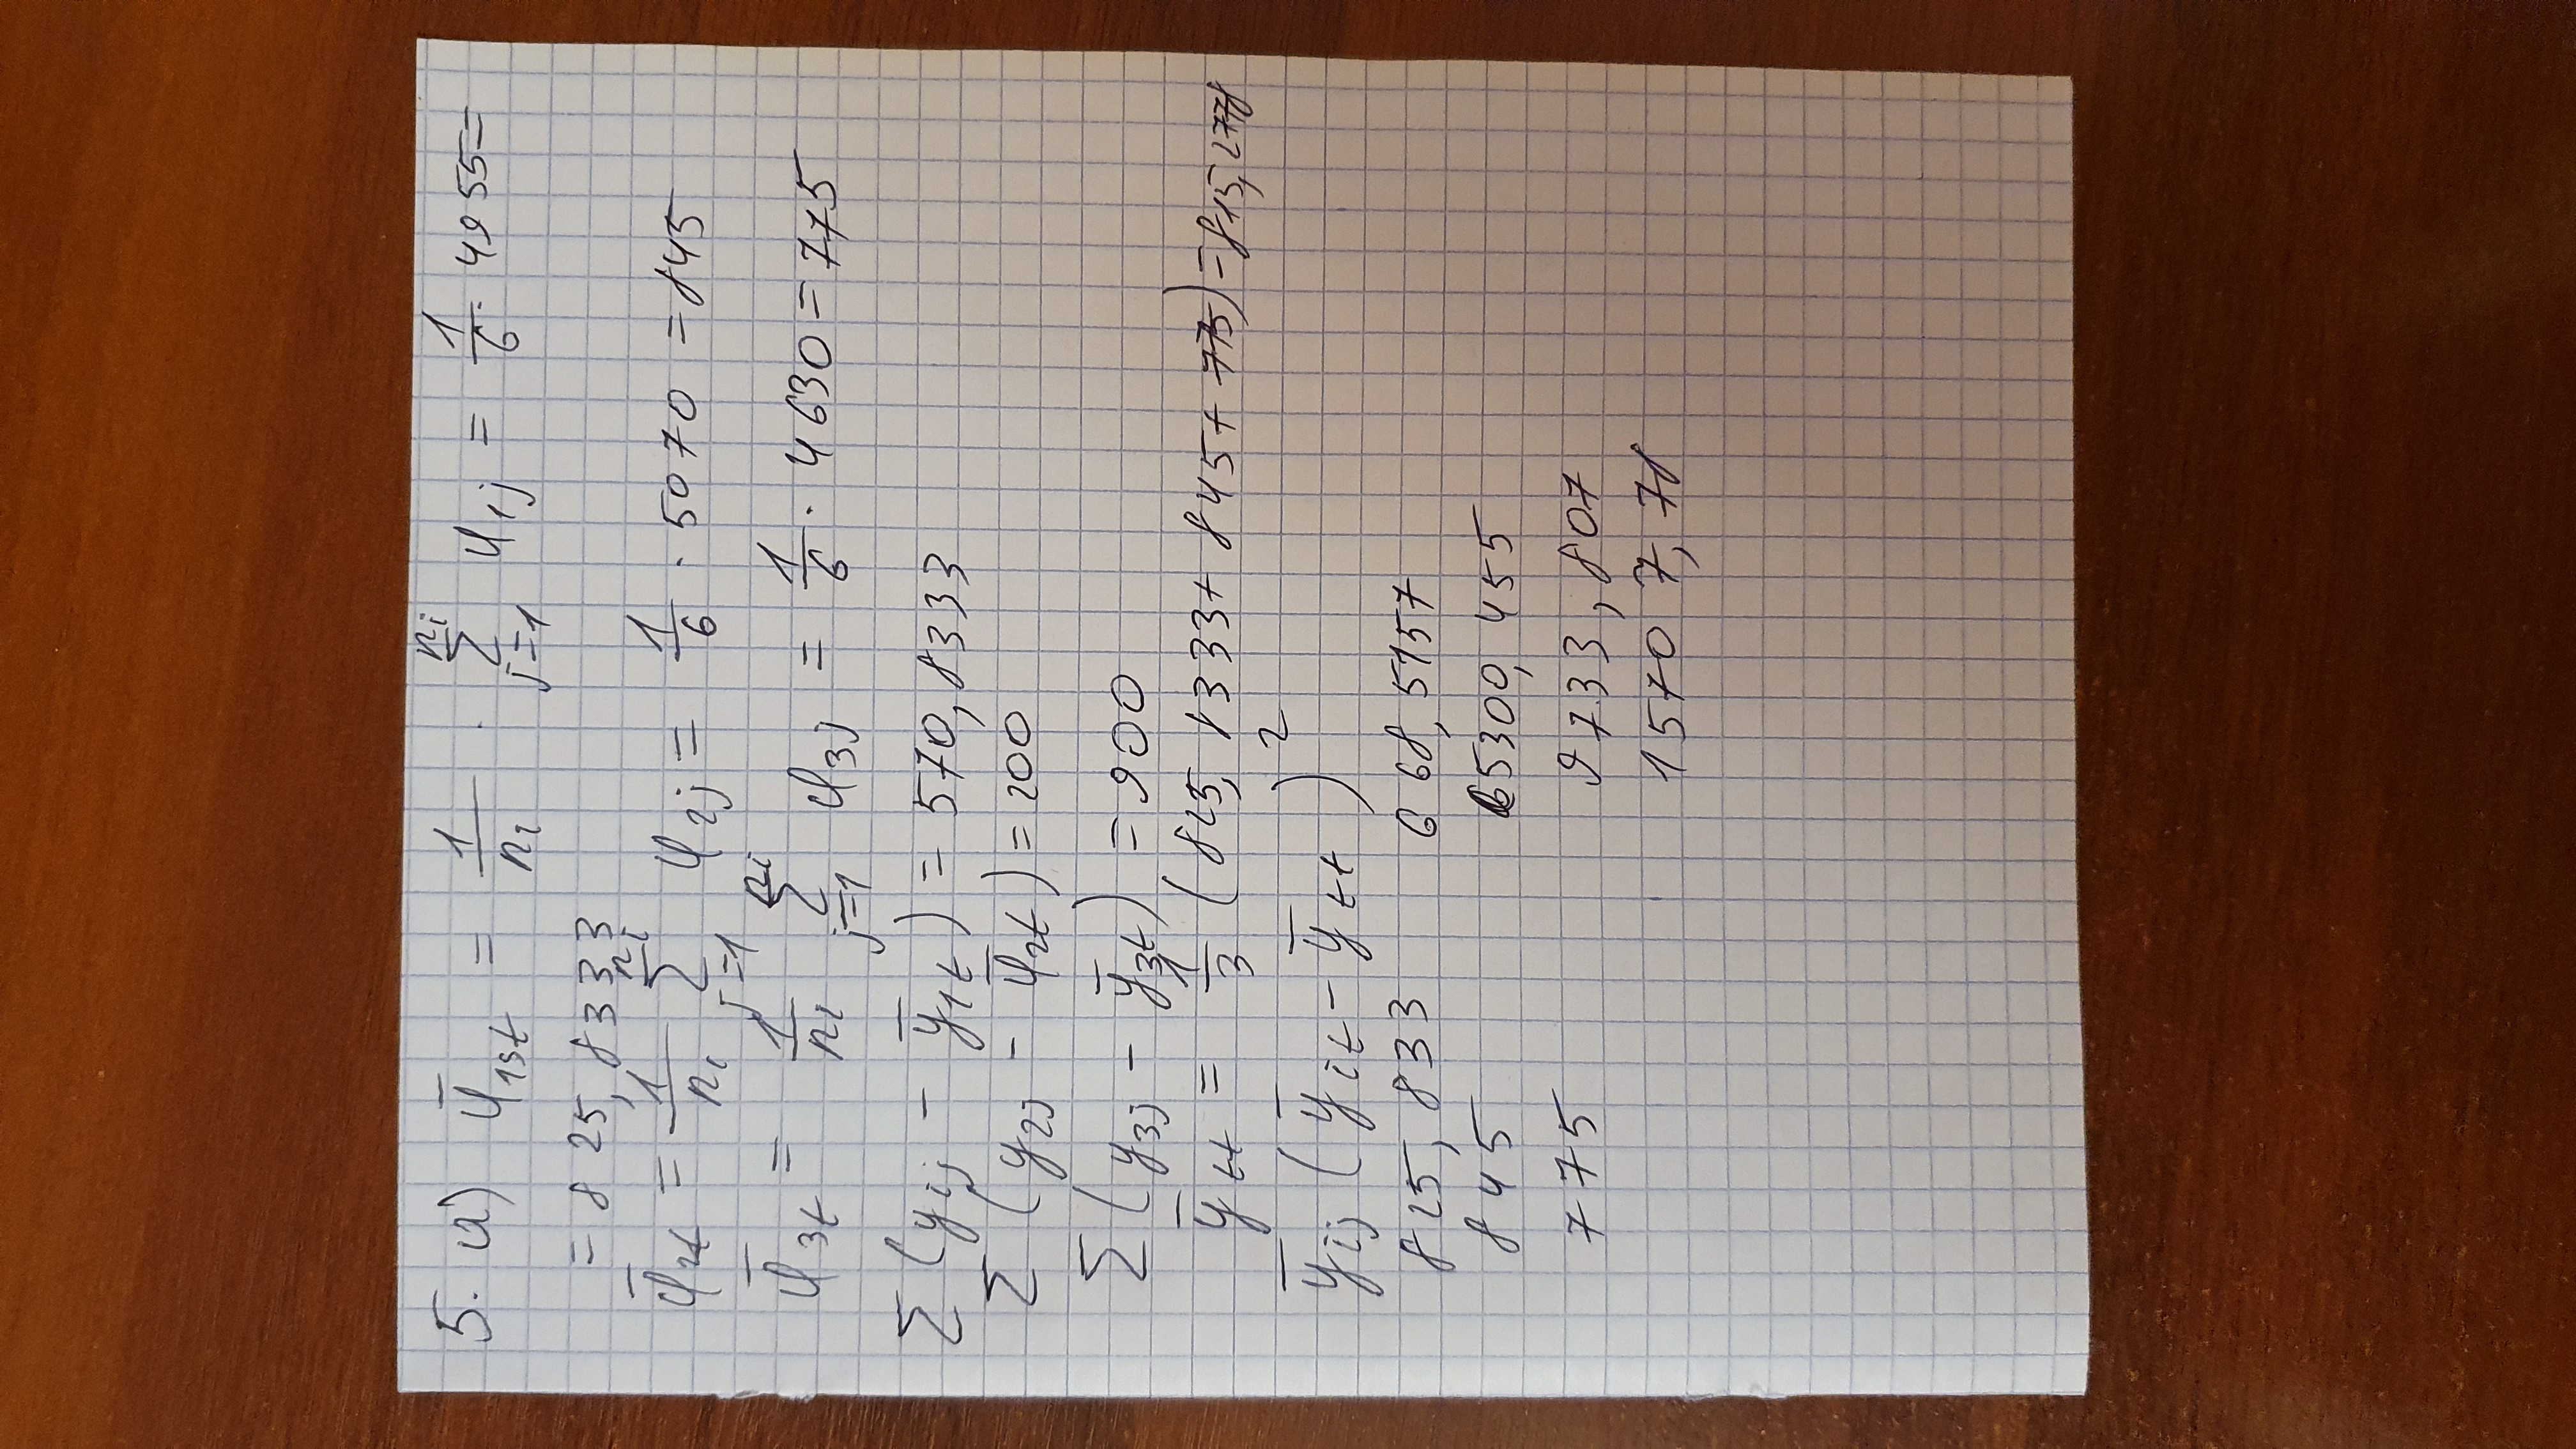 5. a) ȳ₁ₛₜ = 1/nᵢ · Σ_{j=1}^{nᵢ} y₁ⱼ = 1/6 · 4955 =
= 825,8333
ȳ₂ₜ = 1/nᵢ Σ_{j=1}^{nᵢ} y₂ⱼ = 1/6 · 5070 = 845
ȳ₃ₜ = 1/nᵢ Σ_{j=1}^{nᵢ} y₃ⱼ = 1/6 · 4630 = 775
Σ (yᵢⱼ - ȳ₁ₜ) = 570,8333
Σ (y₂ⱼ - ȳ₂ₜ) = 200
Σ (y₃ⱼ - ȳ₃ₜ) = 900
ȳₜₜ = 1/3 (825,8333 + 845 + 775) = 815,2778
ȳᵢⱼ (ȳᵢₜ - ȳₜₜ)²
825,833 668,5157
845 5300,455
775 9733,807
15707,78